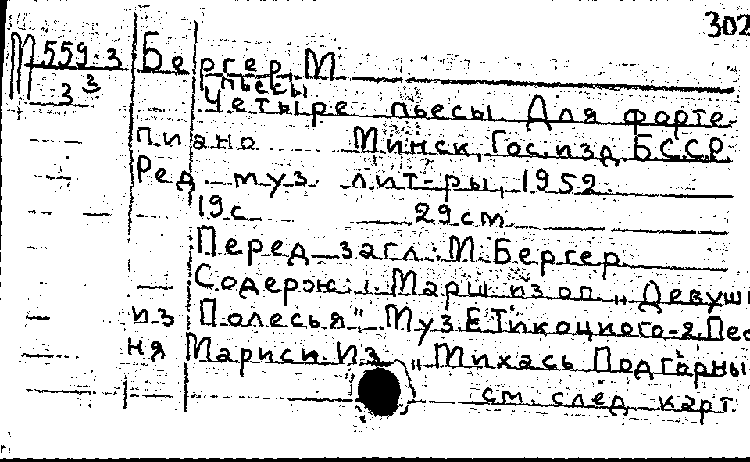 302
М 559.3 Бергер М
3 3 Пьесы
Четыре пьесы Для форте-
пиано Минск, Гос. изд БССР
Ред муз лит-ры, 1952
19с 29см
Перед загл: М. Бергер
Содерж: 1. Марш из оп „Девушк
из Полесья" Муз Е Тикоцкого-2. Пес
ня Мариси. Из „Михась Подгорны
см. след карт.